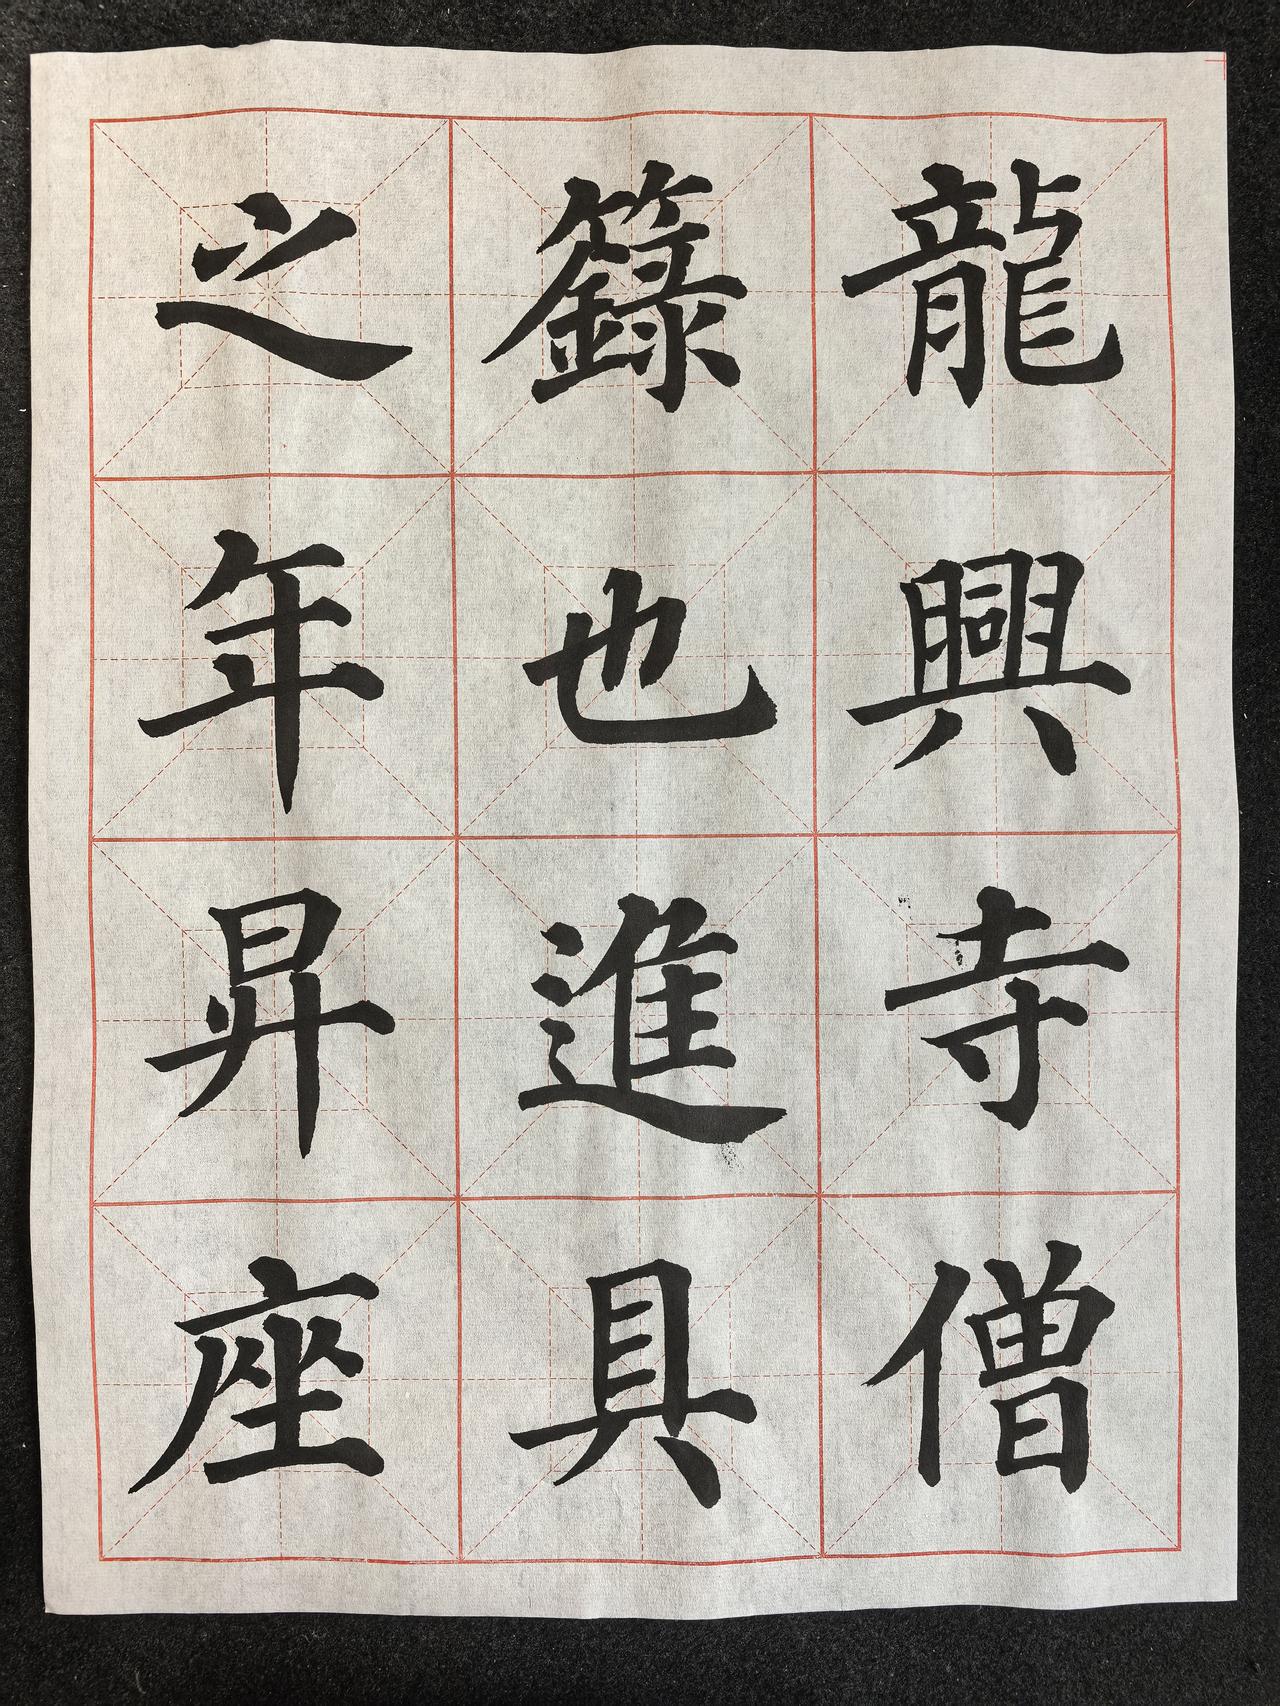 龍興寺僧
籙也進具
之年昇座